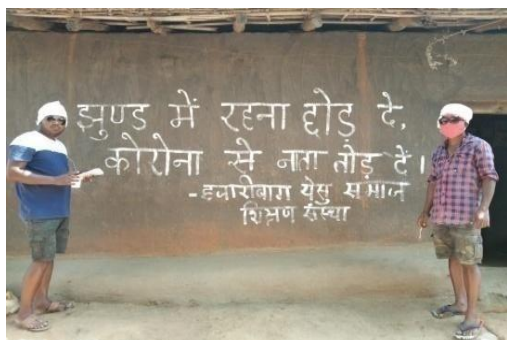 झुण्ड में रहना छोड़ दे,
कोरोना से नाता तोड़ दें।
-हजारीबाग येसु समाज
शिक्षण संस्था